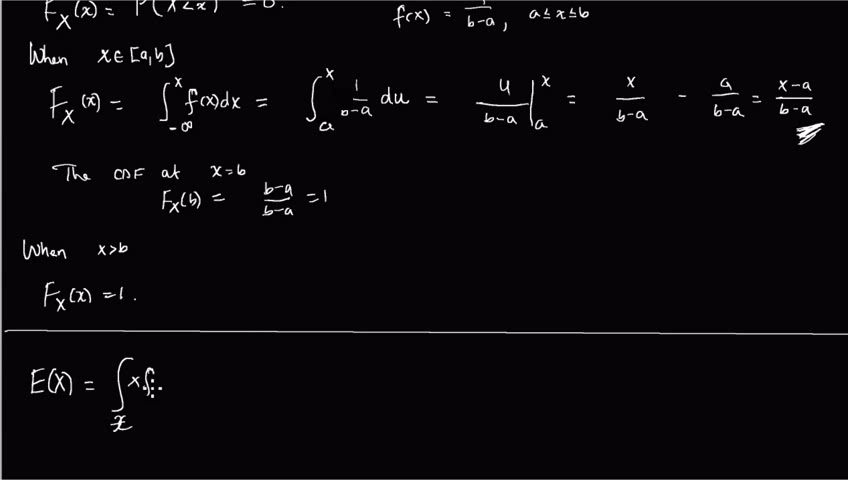 F_X(x) = P(X<x) = 0.
f(x) = 1/(b-a), a≤x≤b
When x∈[a,b]
F_X(x) = ∫_{-∞}^{x} f(x)dx = ∫_{a}^{x} 1/(b-a) du = u/(b-a) |_{a}^{x} = x/(b-a) - a/(b-a) = (x-a)/(b-a)
The CDF at x=b
F_X(b) = (b-a)/(b-a) = 1
When x>b
F_X(x) = 1.
E(X) = ∫_x x f